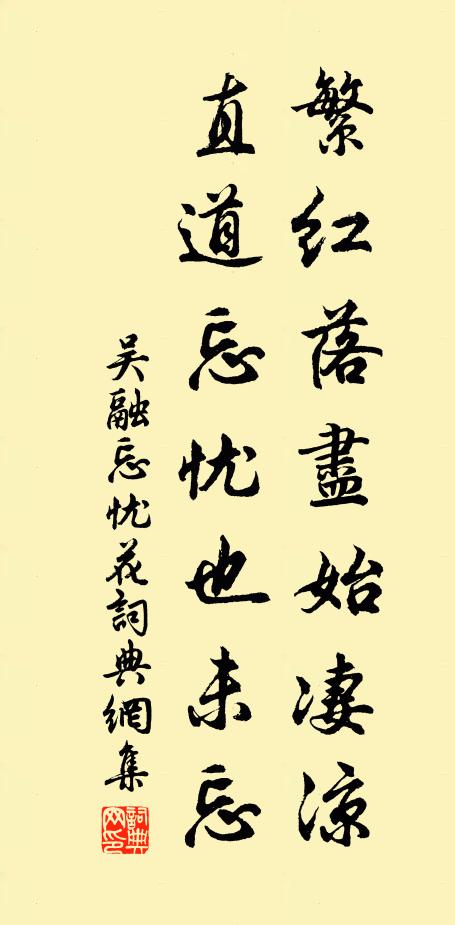 繁红落盡始凄凉
直道忘忧也未忘
吴融忘忧花詞典網集
詞典网印